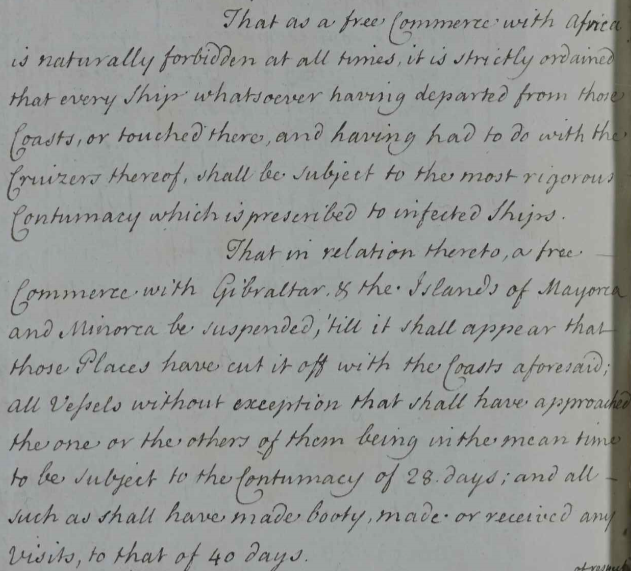 That as a free Commerce with Africa
is naturally forbidden at all times, it is strictly ordained
that every Ship whatsoever having departed from those
Coasts, or touched there, and having had to do with the
Cruizers thereof, shall be subject to the most rigorous
Contumacy which is prescribed to infected Ships.
That in relation thereto, a free
Commerce with Gibraltar, & the Islands of Mayorca
and Minorca be suspended, 'till it shall appear that
those Places have cut it off with the Coasts aforesaid;
all Vessels without exception that shall have approached
the one or the others of them being in the mean time
to be subject to the Contumacy of 28. days; and all
such as shall have made booty, made or received any
Visits, to that of 40 days.